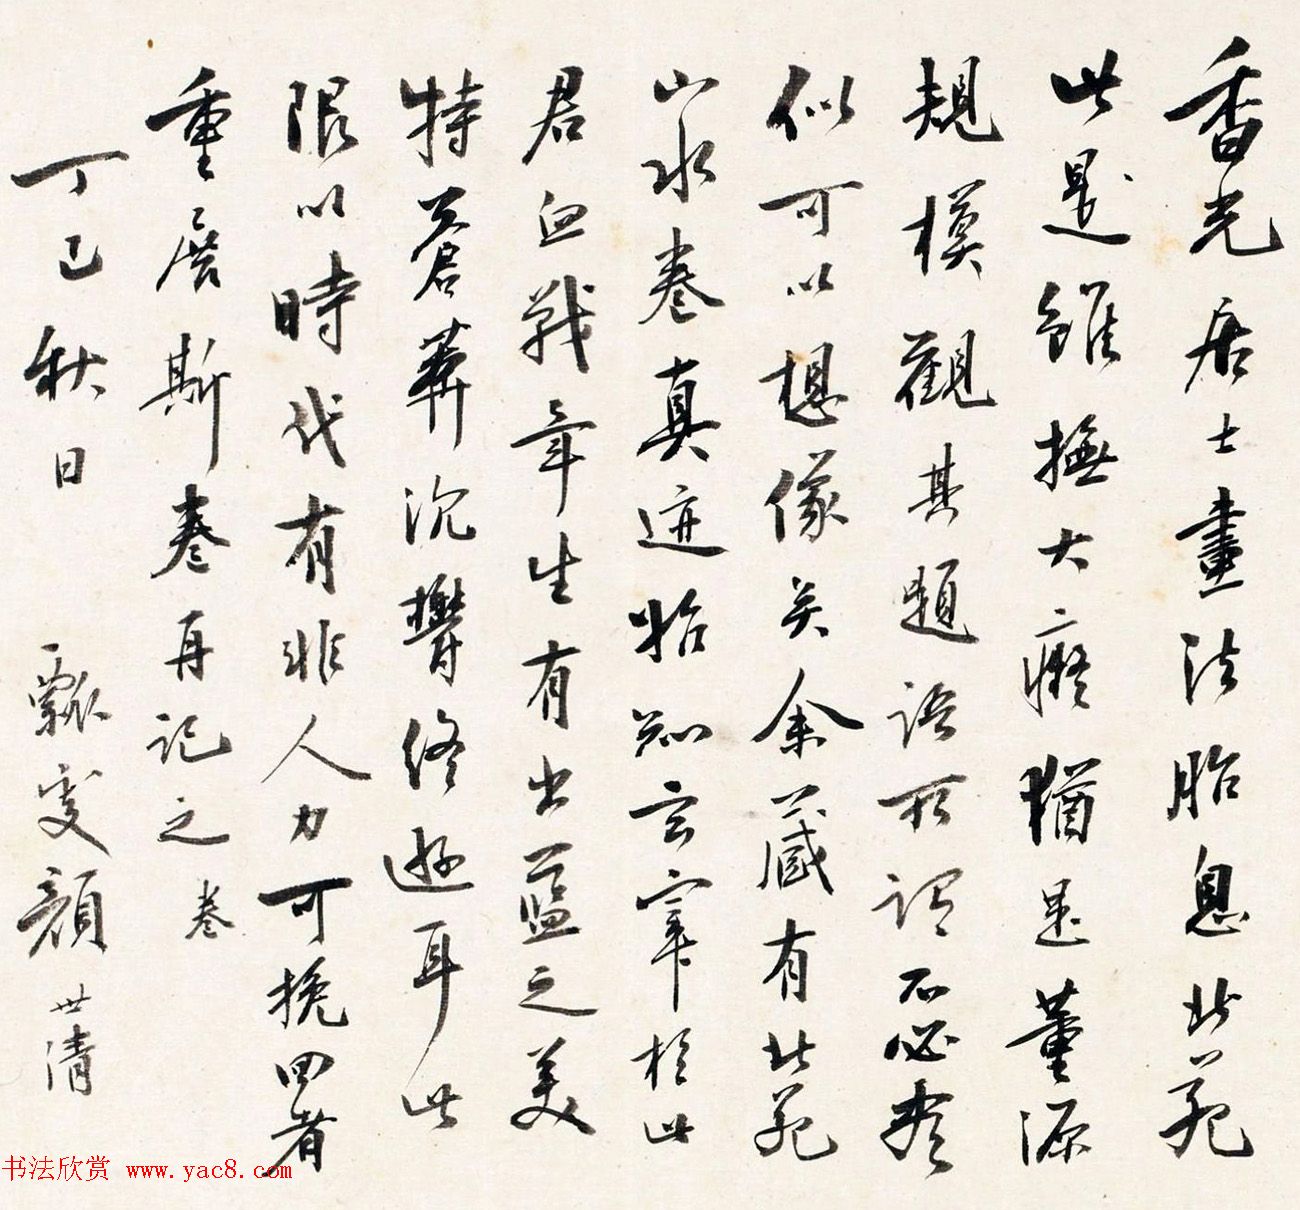 香光居士畫法胎息北苑
此是雖撫大癡猶是董源
規模觀其題語所謂不必
似可以想像矣余藏有北苑
山水卷真迹始知玄宰於此
君血戰章生有出藍之美
特蒼莽沉鬱終遜耳此
限以時代有非人力可挽回者
重展斯卷再記之 卷
丁巳秋日 瓢叟顏世清
书法欣赏 www.yac8.com